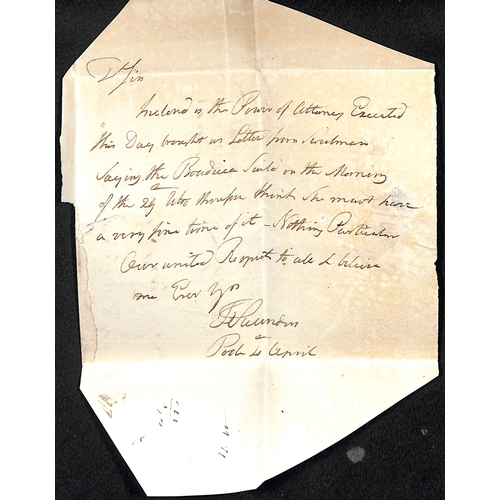 D Sir
Inclosed is the Power of Attorney Executed
this Day brought us Letter from
Saying the Boadicea Saild on the Morning
of the 29 We therefore think She must have
a very fine time of it - Nothing Particular
Our united Respects to all & believe
me Ever Yrs
Saunders
4 April